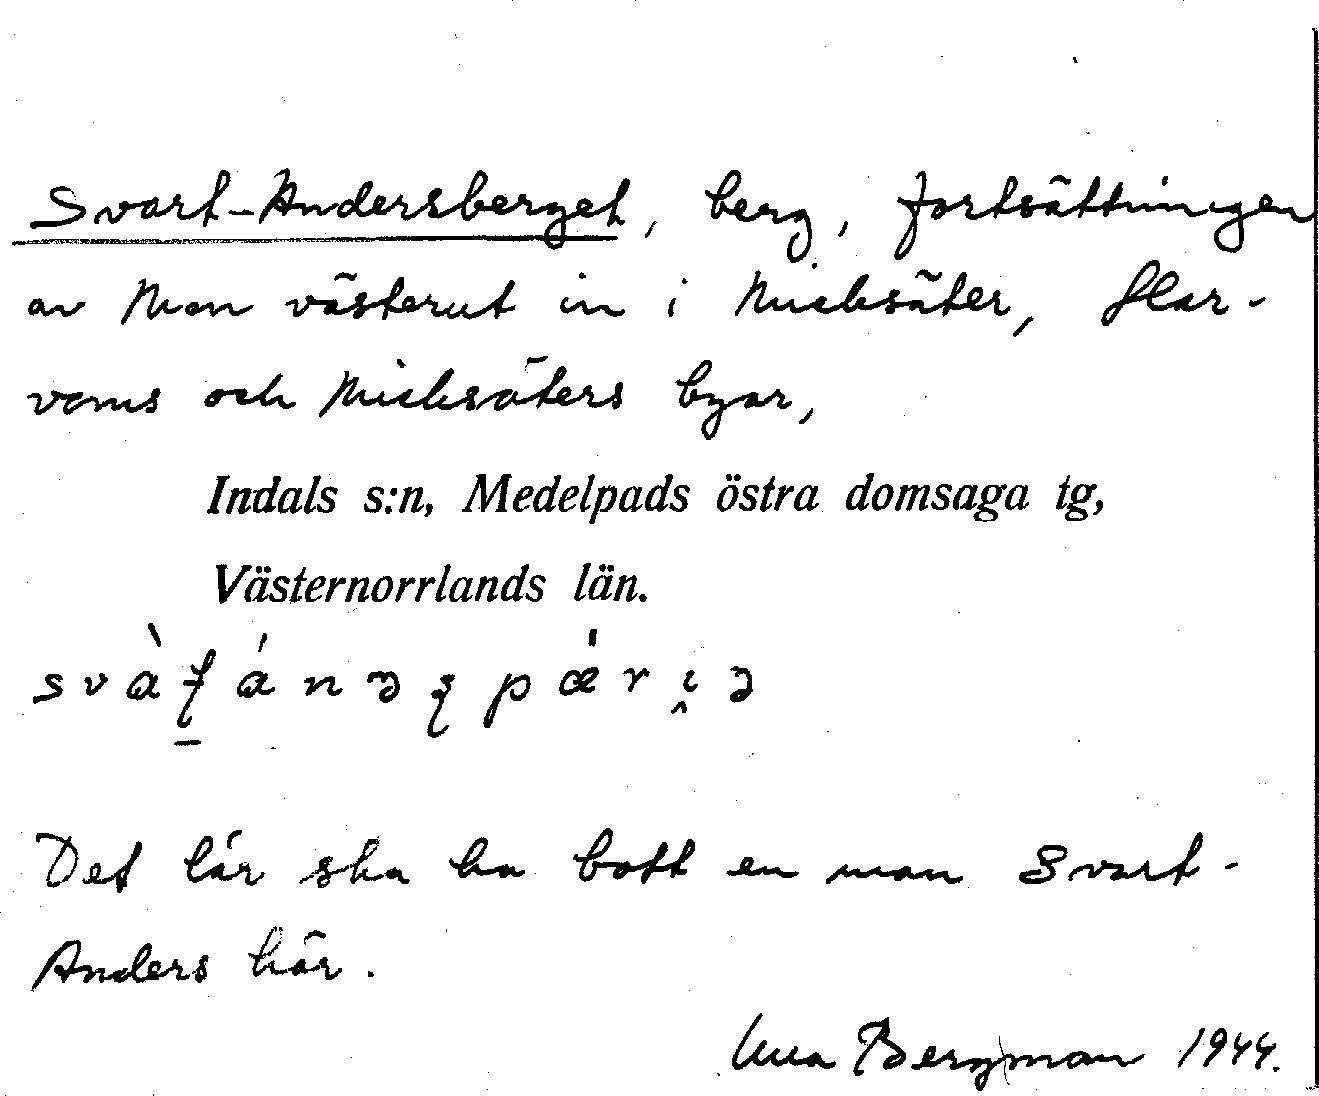 Svart-Andersberget, berg, fortsättningen
av Mon västerut in i Micksäter, Slar-
voms och Micksäters byar,
Indals s:n, Medelpads östra domsaga tg,
Västernorrlands län.
Det lär ska ha bott en man Svart-
Anders här.
Bergman 1944.